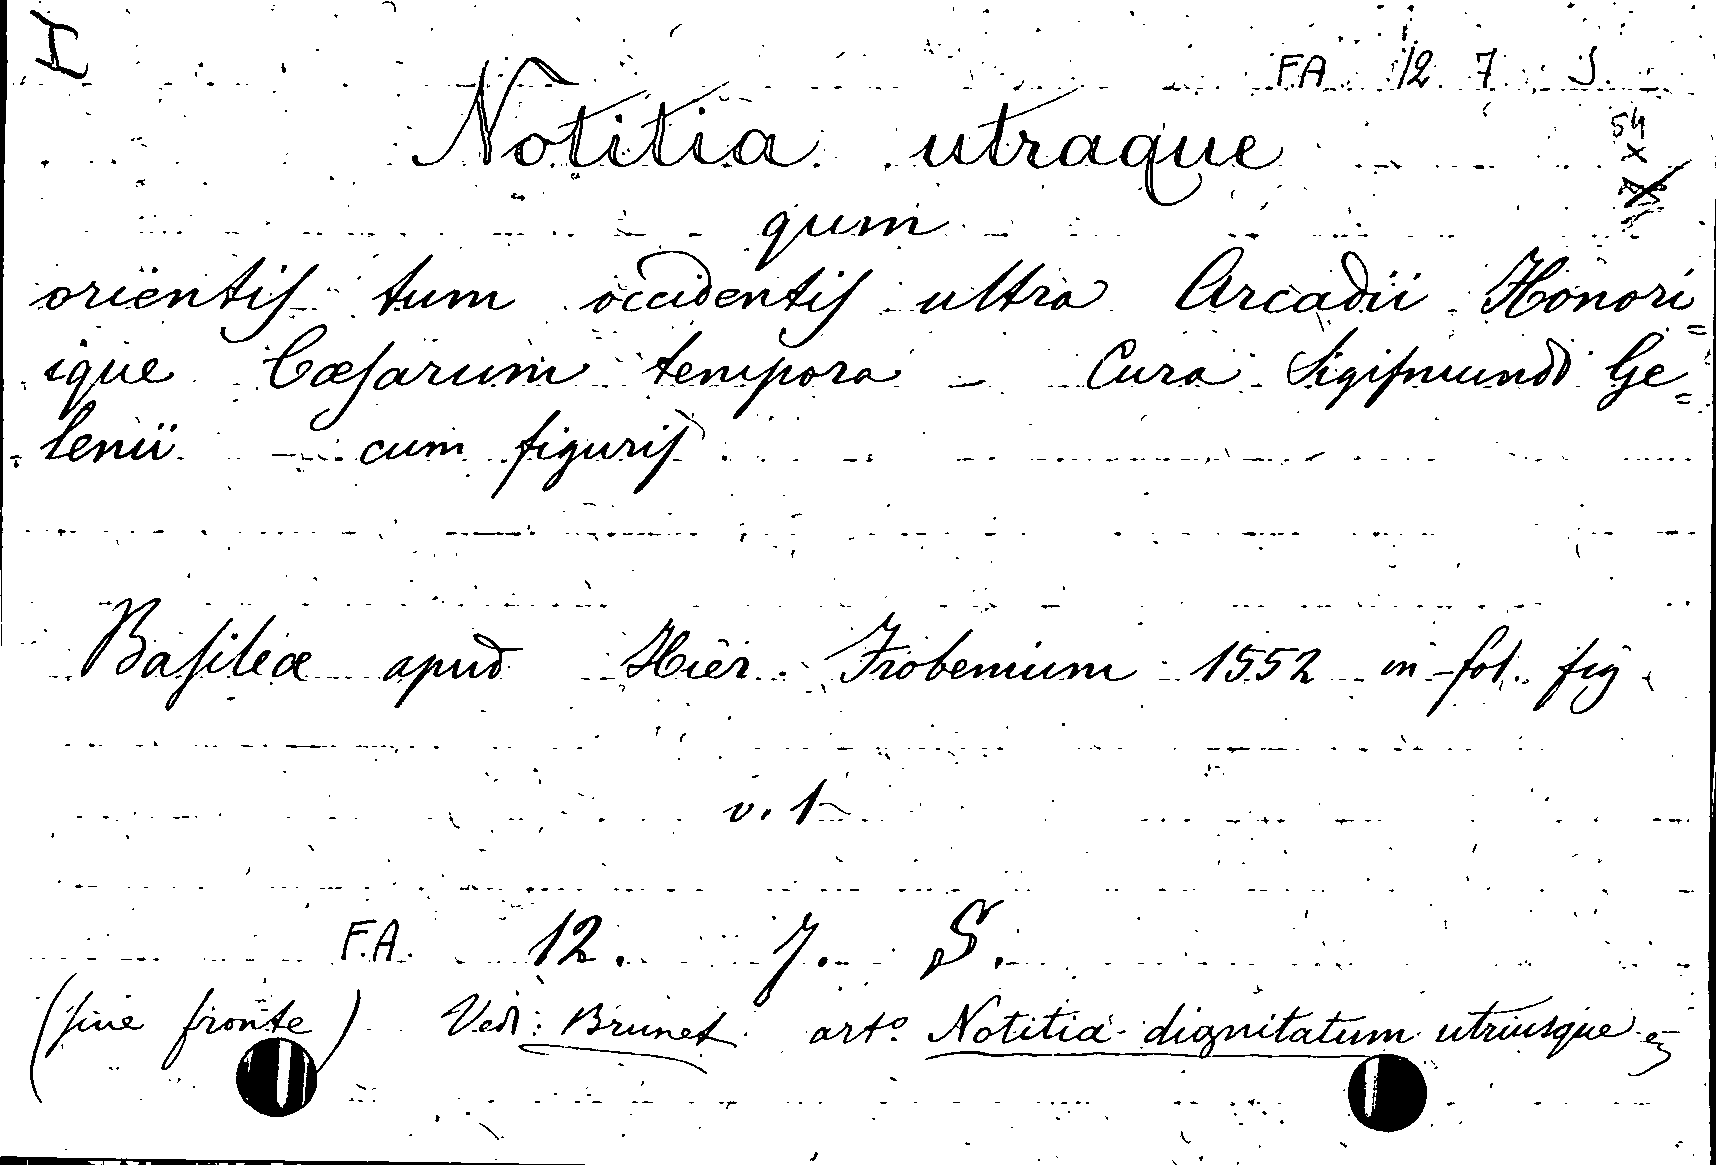 I
F.A. 12 7 S.
54
x
Notitia utraque
qum
orientis tum occidentis ultra Arcadii Honori=
ique Cæsarum tempora – Cura Sigismundi Ge=
=lenii – cum figuris
Basileæ apud Hier. Frobenium 1552 in-fol. fig.
v. 1
F.A. 12. 7. S.
(sine fronte) Vedi: Brunet art.° Notitia dignitatum utriusque